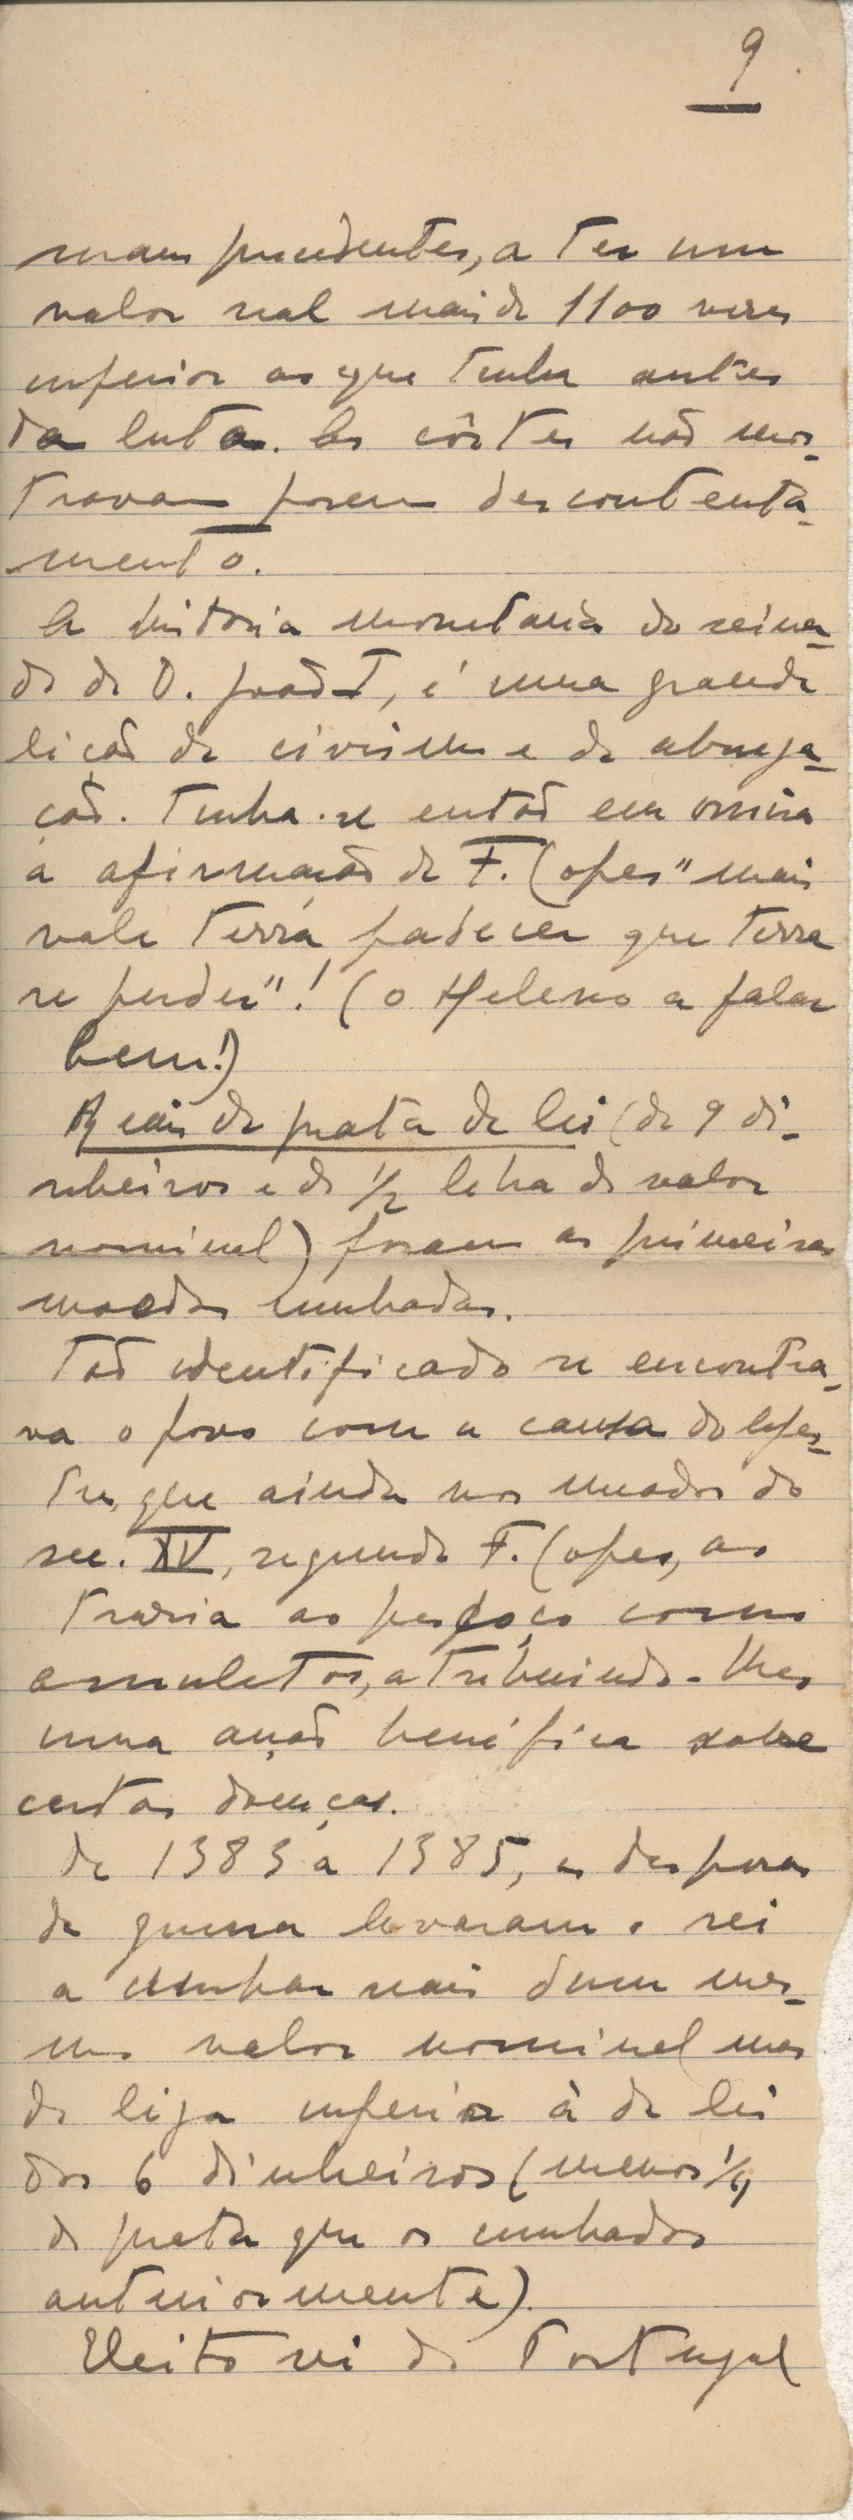 9
mam precedentes, a ter um
valor real mais de 1100 vezes
inferior ao que tinha antes
da luta. As côrtes não mos-
travam porem descontenta-
mento.
A historia monetaria do reina-
do de D. João I, é uma grande
lição de civismo e de abnega-
ção. Tinha-se então em
a afirmação de F. Lopes "mais
vale terra padecer que terra
se perder"! (o Heleno a falar
bem!)
Reais de prata de lei (de 9 di-
nheiros e de ½ libra de valor
nominal) foram as primeiras
moedas cunhadas.
Tão identificado se encontra-
va o povo com a causa do Mes-
tre, que ainda nos meados do
sec. XV, segundo F. Lopes, as
trazia ao pescoço como
amuletos, atribuindo-lhes
uma ação benéfica sobre
certas doenças.
De 1383 a 1385, as despesas
de guerra levaram o rei
a cunhar reais dum mes-
mo valor nominal mas
de liga inferior à de lei
dos 6 dinheiros (menos
de prata que os cunhados
anteriormente).
Eleito rei de Portugal